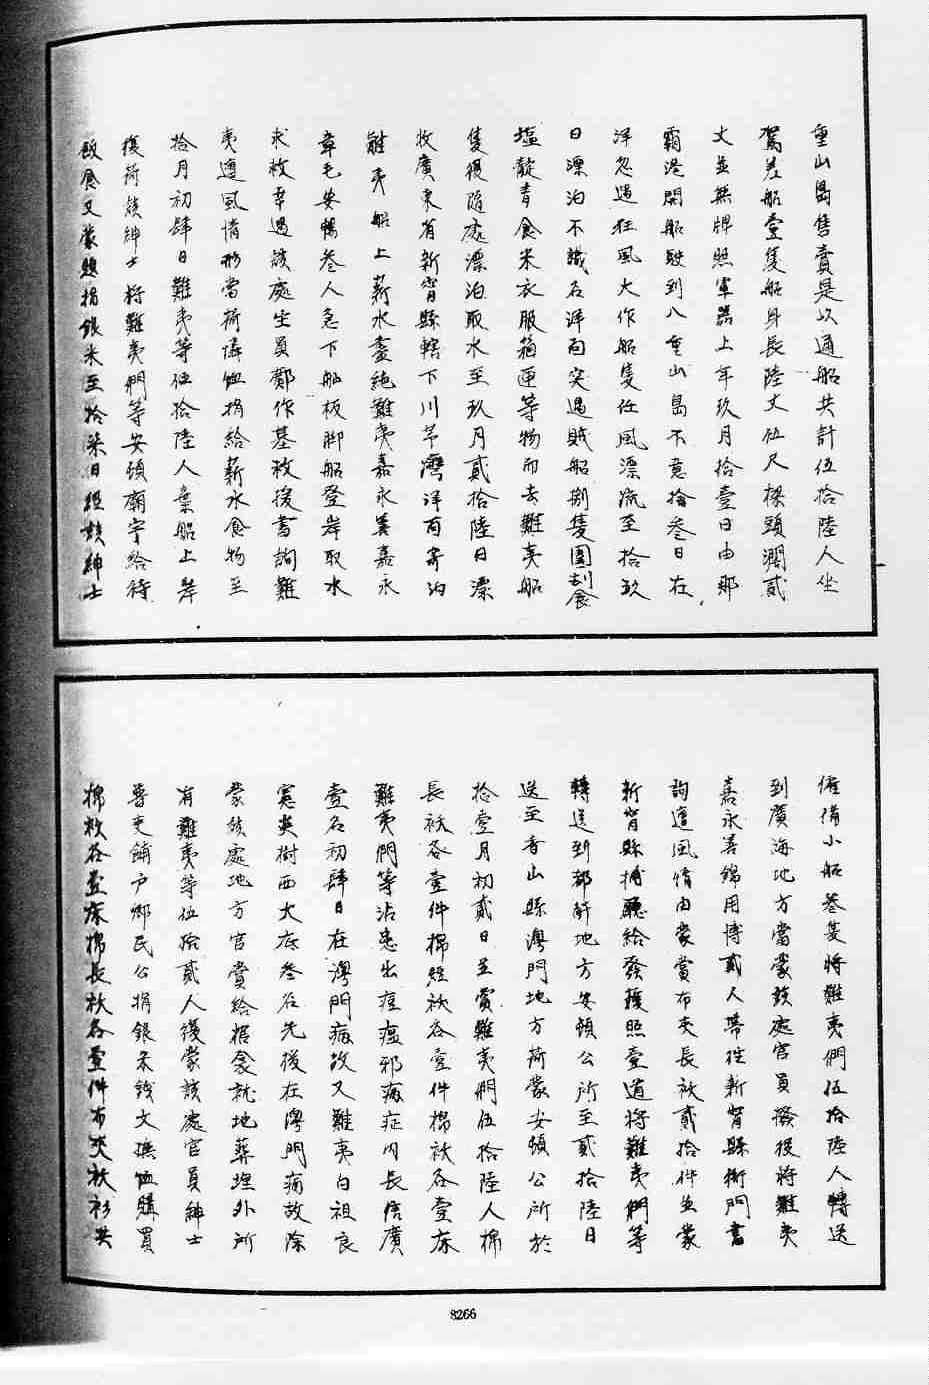 重山島售賣是以通船共計伍拾陸人坐
駕差船壹隻船身長陸丈伍尺樑頭濶貳
丈並無牌照軍器上年玖月拾壹日由那
霸港開船駛到八重山島不意拾叁日在
洋忽遇狂風大作船隻任風漂流至拾玖
日漂泊不識名洋面突遇賊船捌隻圍刦食
塩靛青食米衣服箱匣等物而去難夷船
隻復隨處漂泊取水至玖月貳拾陸日漂
收廣東省新甯縣轄下川芋灣洋面寄泊
難夷船上薪水盡絶難夷嘉永善嘉永
章毛安暢叁人急下舢板脚船登岸取水
求救幸遇該處生員鄭作基救後書詢難
夷遭風情形當荷憐恤捐給薪水食物至
拾月初肆日難夷等伍拾陸人棄船上岸
復荷該紳士將難夷們等安頓廟宇給待
飯食又蒙題捐銀米至拾柒日經該紳士
催備小船叁隻將難夷們伍拾陸人轉送
到廣海地方當蒙該處官員撥役將難夷
嘉永善錦用博貳人帶往新甯縣衙門書
詢遭風情由蒙賞布夾長袄貳拾件並蒙
新甯縣捕廳給發護照壹道將難夷們等
轉送到都斛地方安頓公所至貳拾陸日
送至香山縣澳門地方荷蒙安頓公所於
拾壹月初貳日並賞難夷們伍拾陸人棉
長袄各壹件棉短袄各壹件棉袄各壹床
難夷們等沾患出痘瘟邪痾症内長信廣
壹名初肆日在澳門病故又難夷白祖良
憲英樹西大底叁名先後在澳門病故除
蒙該處地方官賞給棺衾就地葬埋外所
有難夷等伍拾貳人復蒙該處官員紳士
晋吏舖户鄉民公捐銀米錢文撫恤購買
棉被各壹床棉長袄各壹件布夾袄衫共
8266